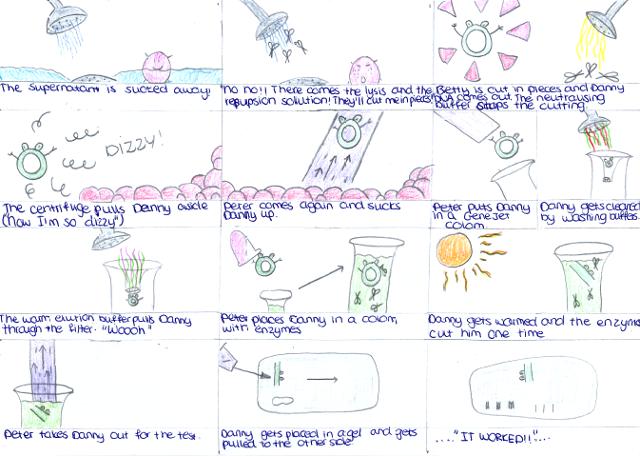 The supernatant is sucted away!
"No no!! There comes the lysis and the
repupsion solution! They'll cut me in pieces!"
Betty is cut in pieces and Danny
DNA comes out. The neutralising
buffer stops the cutting.
DIZZY!
The centrifuge pulls Danny aside
(how I'm so dizzy")
Peter comes again and sucks
Danny up.
Peter puts Danny
in a GeneJet
colom
Danny gets cleared
by washing buffer.
The warm elution buffer pulls Danny
through the filter. "Woooh"
Peter places Danny in a colom,
with enzymes
Danny gets warmed and the enzyme
cut him one time
Peter takes Danny out for the test.
Danny gets placed in a gel and gets
pulled to the other side
...."IT WORKED!!"....